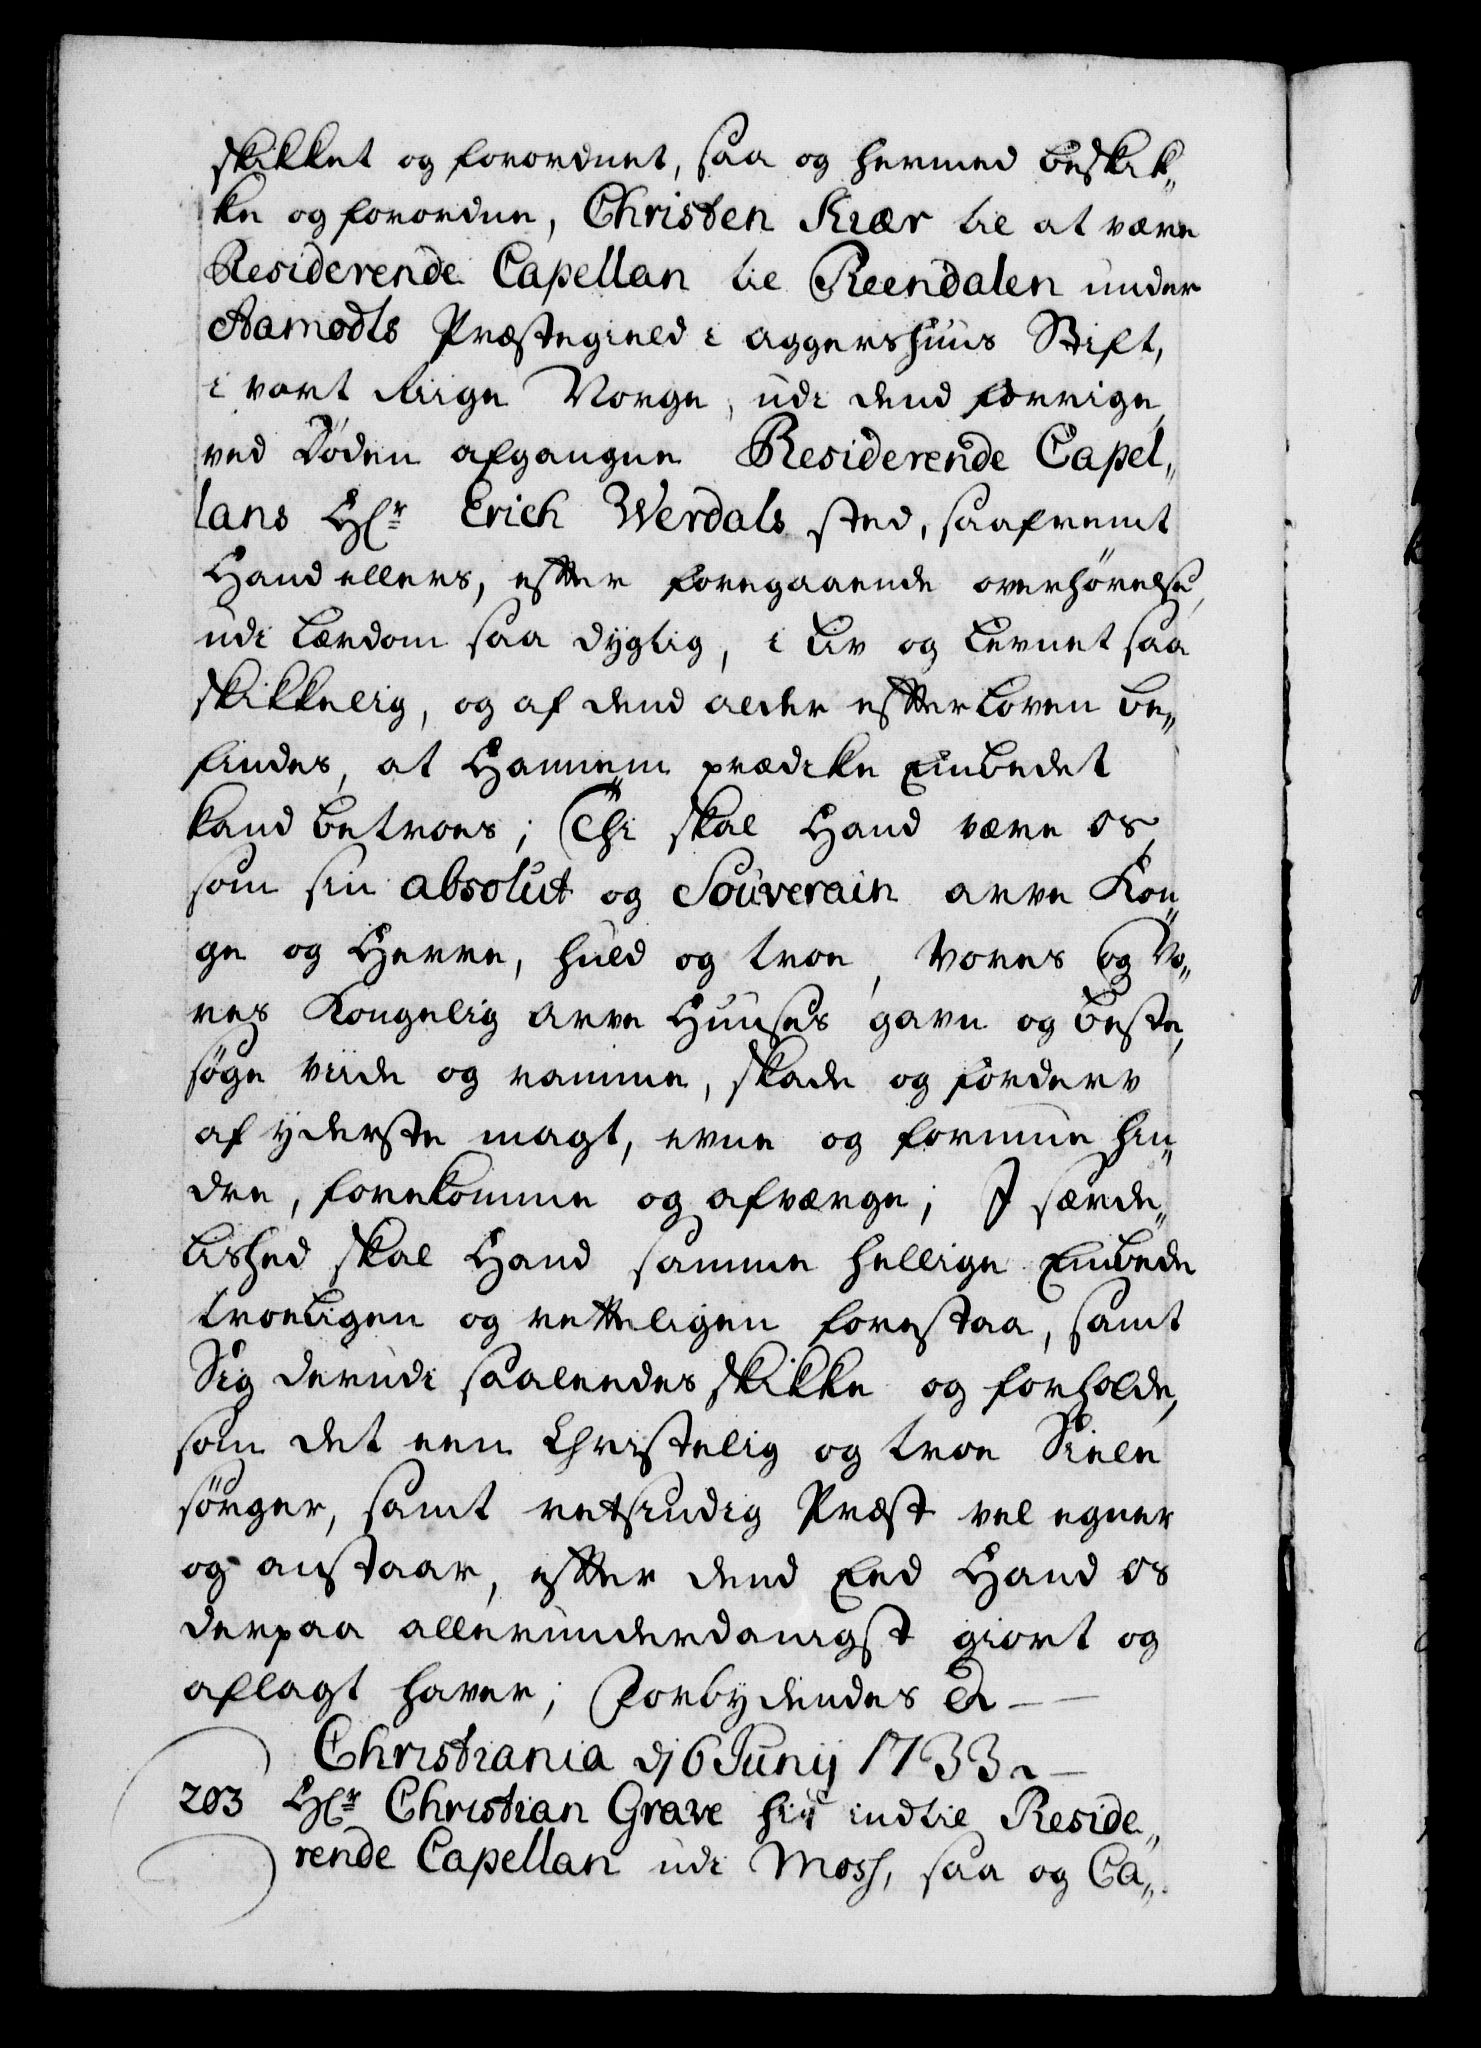 skikket og forordnet, saa og hermed beskik„
ke og forordne, Christen Kiær til at være
Residerende Capellan til Reendalen under
Aamodts Præstegield i Aggershuus Stift,
i vort Riige Norge, udi dend forrige,
ved Døden afgangne Residerende Capel„
lans Hr Erich Werdals sted, saafremt
Hand ellers, efter foregaaende overhørelse,
udi Lærdom saa dygtig, i Liv og Levnet saa
skikkelig, og af dend alder efter Loven be„
findes, at Hannem prædike Embedet
kand betroes; Thi skal Hand være os,
som sin absolut og Souverain arve Kon„
ge og Herre, huld og troe, Vores og Vo„
res Kongelig Arve Huuses gavn og beste,
søge viide og ramme, skade og forderv
af yderste magt, evne og formue hin„
dre, forekomme og afværge; I særde„
lished skal Hand samme hellige Embede
troeligen og retteligen forestaa, samt
Sig derudi saaledes skikke og forholde,
som det een Christelig og troe Siæle
sørger, samt retsindig Præst vel egner
og anstaar, efter dend Eed Hand os
derpaa allerunderdanigst giort og
aflagt haver; Forbydendes &
Christiania d 6 Junij 1733
203 Hr Christian Grave hid indtil Reside„
rende Capellan udi Moss, saa og Ca„